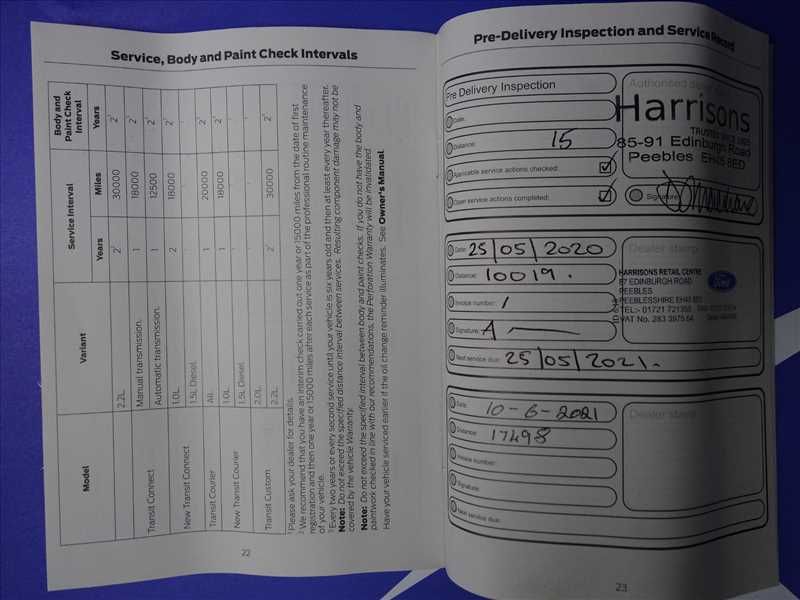 Service, Body and Paint Check Intervals
Model
Variant
Service Interval
Body and Paint Check Interval
Years
Miles
Years
2.2L
2²
30000
2³
Transit Connect
Manual transmission.
1
18000
2³
Automatic transmission.
1
12500
2³
New Transit Connect
1.0L
2
18000
2³
1.5L Diesel
Transit Courier
All.
1
20000
2³
New Transit Courier
1.0L
1
18000
2³
1.5L Diesel
Transit Custom
2.0L
2.2L
2²
30000
2³
¹ Please ask your dealer for details.
² We recommend that you have an interim check carried out one year or 15000 miles from the date of first
registration and then one year or 15000 miles after each service as part of the professional routine maintenance
of your vehicle.
³ Every two years or every second service until your vehicle is six years old and then at least every year thereafter.
Note: Do not exceed the specified distance interval between services. Resulting component damage may not be
covered by the vehicle Warranty.
Note: Do not exceed the specified interval between body and paint checks. If you do not have the body and
paintwork checked in line with our recommendations, the Perforation Warranty will be invalidated.
Have your vehicle serviced earlier if the oil change reminder illuminates. See Owner's Manual.
22
Pre-Delivery Inspection and Service Record
Pre Delivery Inspection
Date:
Distance: 15
Applicable service actions checked:
Open service actions completed:
Harrisons
TRUSTED SINCE
85-91 Edinburgh Road
Peebles EH45 8ED
Signature:
Date: 25/05/2020
Distance: 10019.
Invoice number: 1
Signature: A
Next service due: 25/05/2021.
Dealer stamp
HARRISONS RETAIL CENTRE
87 EDINBURGH ROAD
PEEBLES
PEEBLESSHIRE EH45 8ED
TEL:- 01721 721350
VAT No. 283 3975 64
Ford
Date: 10-6-2021
Distance: 17498
Invoice number:
Signature:
Next service due:
Dealer stamp
23